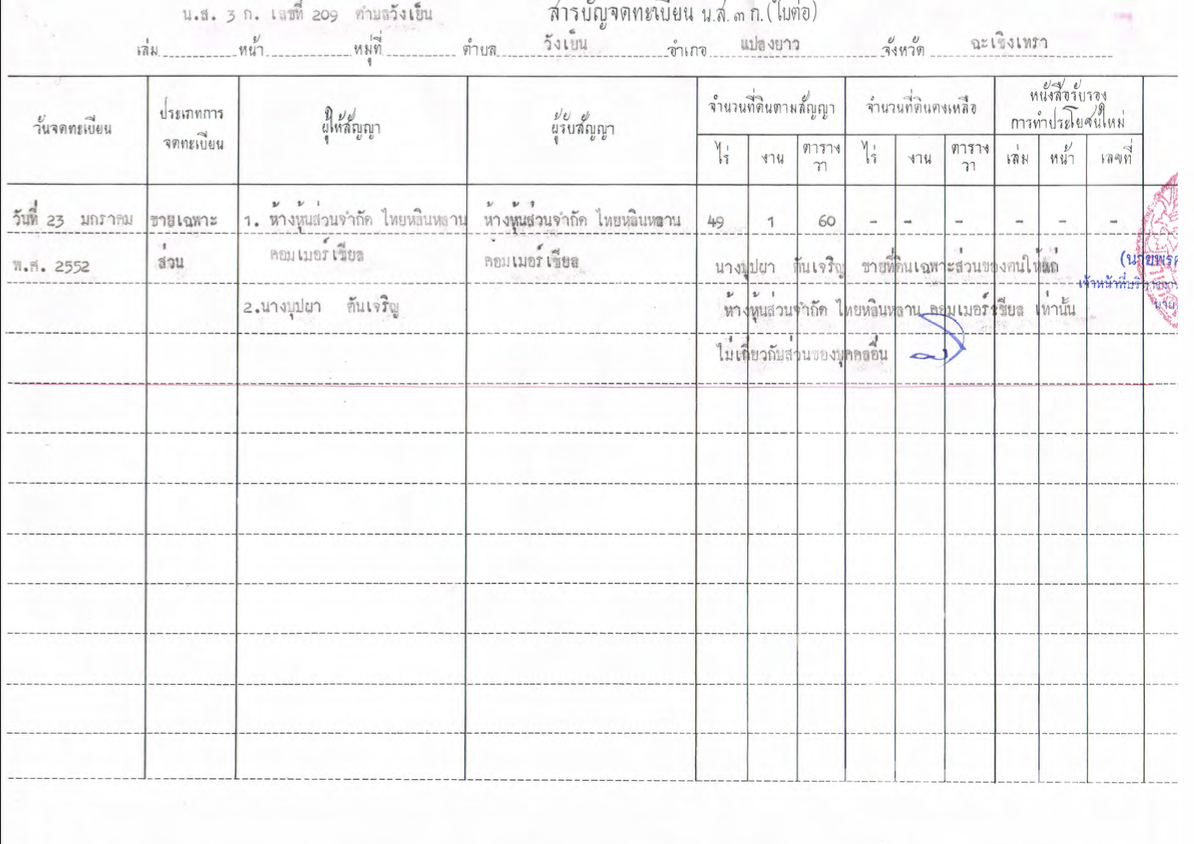 น.ส. 3 ก. เลขที่ 209 ตำบลวังเย็น สารบัญจดทะเบียน น.ส. ๓ ก. (ใบต่อ)
เล่ม หน้า หมู่ที่ ตำบล วังเย็น อำเภอ แปลงยาว จังหวัด ฉะเชิงเทรา
วันจดทะเบียน ประเภทการจดทะเบียน ผู้ให้สัญญา ผู้รับสัญญา จำนวนที่ดินตามสัญญา จำนวนที่ดินคงเหลือ หนังสือรับรองการทำประโยชน์ใหม่
ไร่ งาน ตารางวา ไร่ งาน ตารางวา เล่ม หน้า เลขที่
วันที่ 23 มกราคม ขายเฉพาะ 1. ห้างหุ้นส่วนจำกัด ไทยหลินหลาน ห้างหุ้นส่วนจำกัด ไทยหลินหลาน 49 1 60 - - - - - -
พ.ศ. 2552 ส่วน คอมเมอร์เชียล คอมเมอร์เชียล นางบุปผา ตันเจริญ ขายที่ดินเฉพาะส่วนของตนให้แก่
2.นางบุปผา ตันเจริญ ห้างหุ้นส่วนจำกัด ไทยหลินหลาน คอมเมอร์เชียล เท่านั้น
ไม่เกี่ยวกับส่วนของบุคคลอื่น